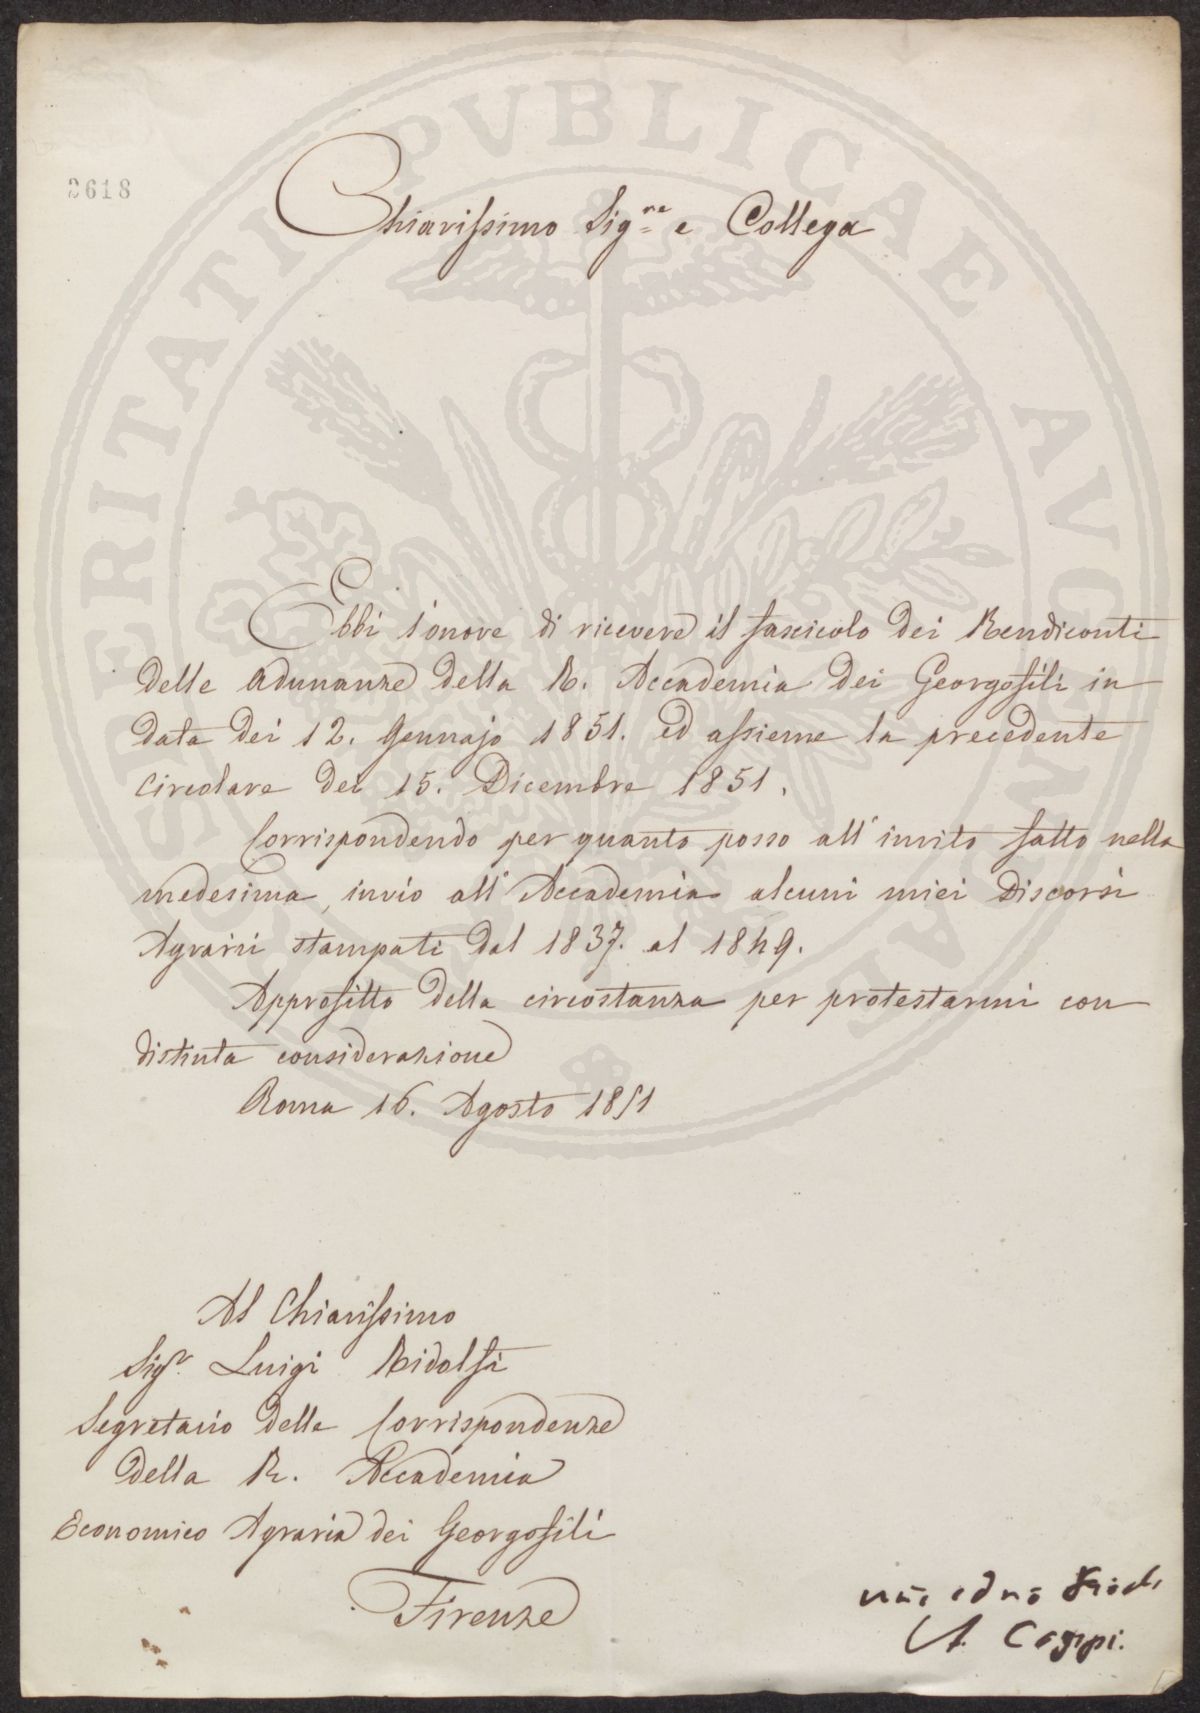 2618
Chiarissimo Sig.re e Collega
Ebbi l'onore di ricevere il fascicolo dei Rendiconti
delle Adunanze della R. Accademia dei Georgofili in
data dei 12. Gennajo 1851. ed assieme la precedente
Circolare dei 15. Dicembre 1851.
Corrispondendo per quanto posso all'invito fatto nella
medesima, invio all'Accademia alcuni miei Discorsi
Agrarii stampati dal 1837. al 1849.
Approfitto della circostanza per protestarmi con
distinta considerazione
Roma 16. Agosto 1851
Al Chiarissimo
Sigr. Luigi Ridolfi
Segretario delle Corrispondenze
della R. Accademia
Economico Agraria dei Georgofili
Firenze
A. Coppi.
PROSPERITATI PVBLICAE AVGENDAE